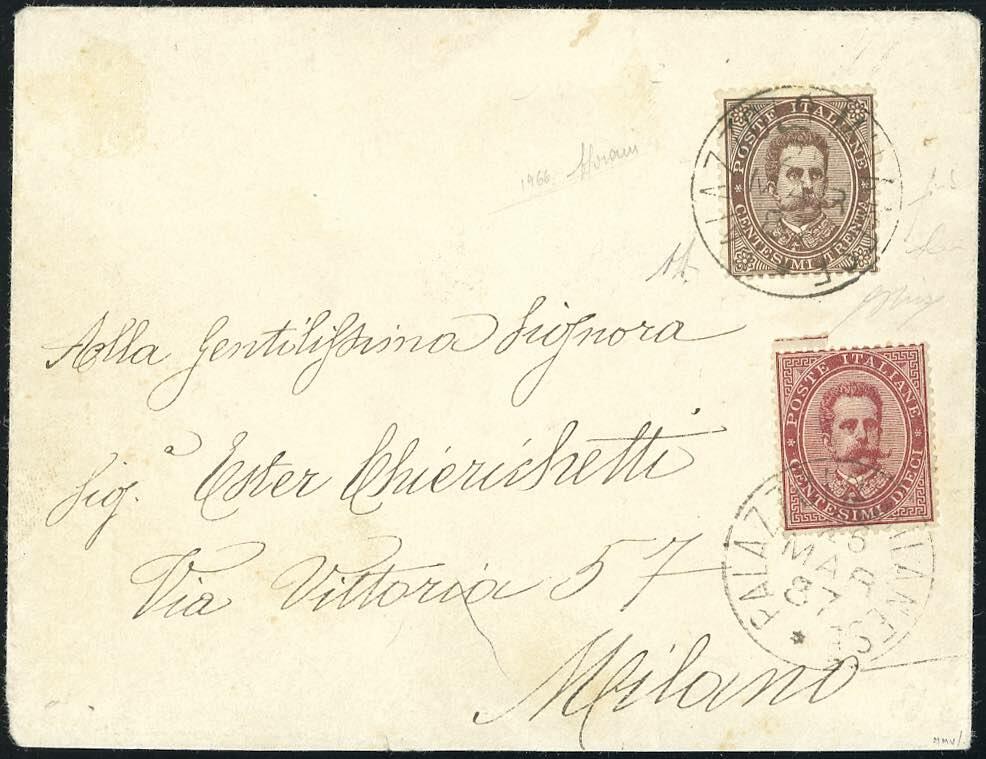 POSTE ITALIANE
CENTESIMI TRENTA
1966
Alla Gentilissima Signora
POSTE ITALIANE
CENTESIMI DIECI
Sig.a Ester Chierichetti
Via Vittoria 57
MAR
87
Milano